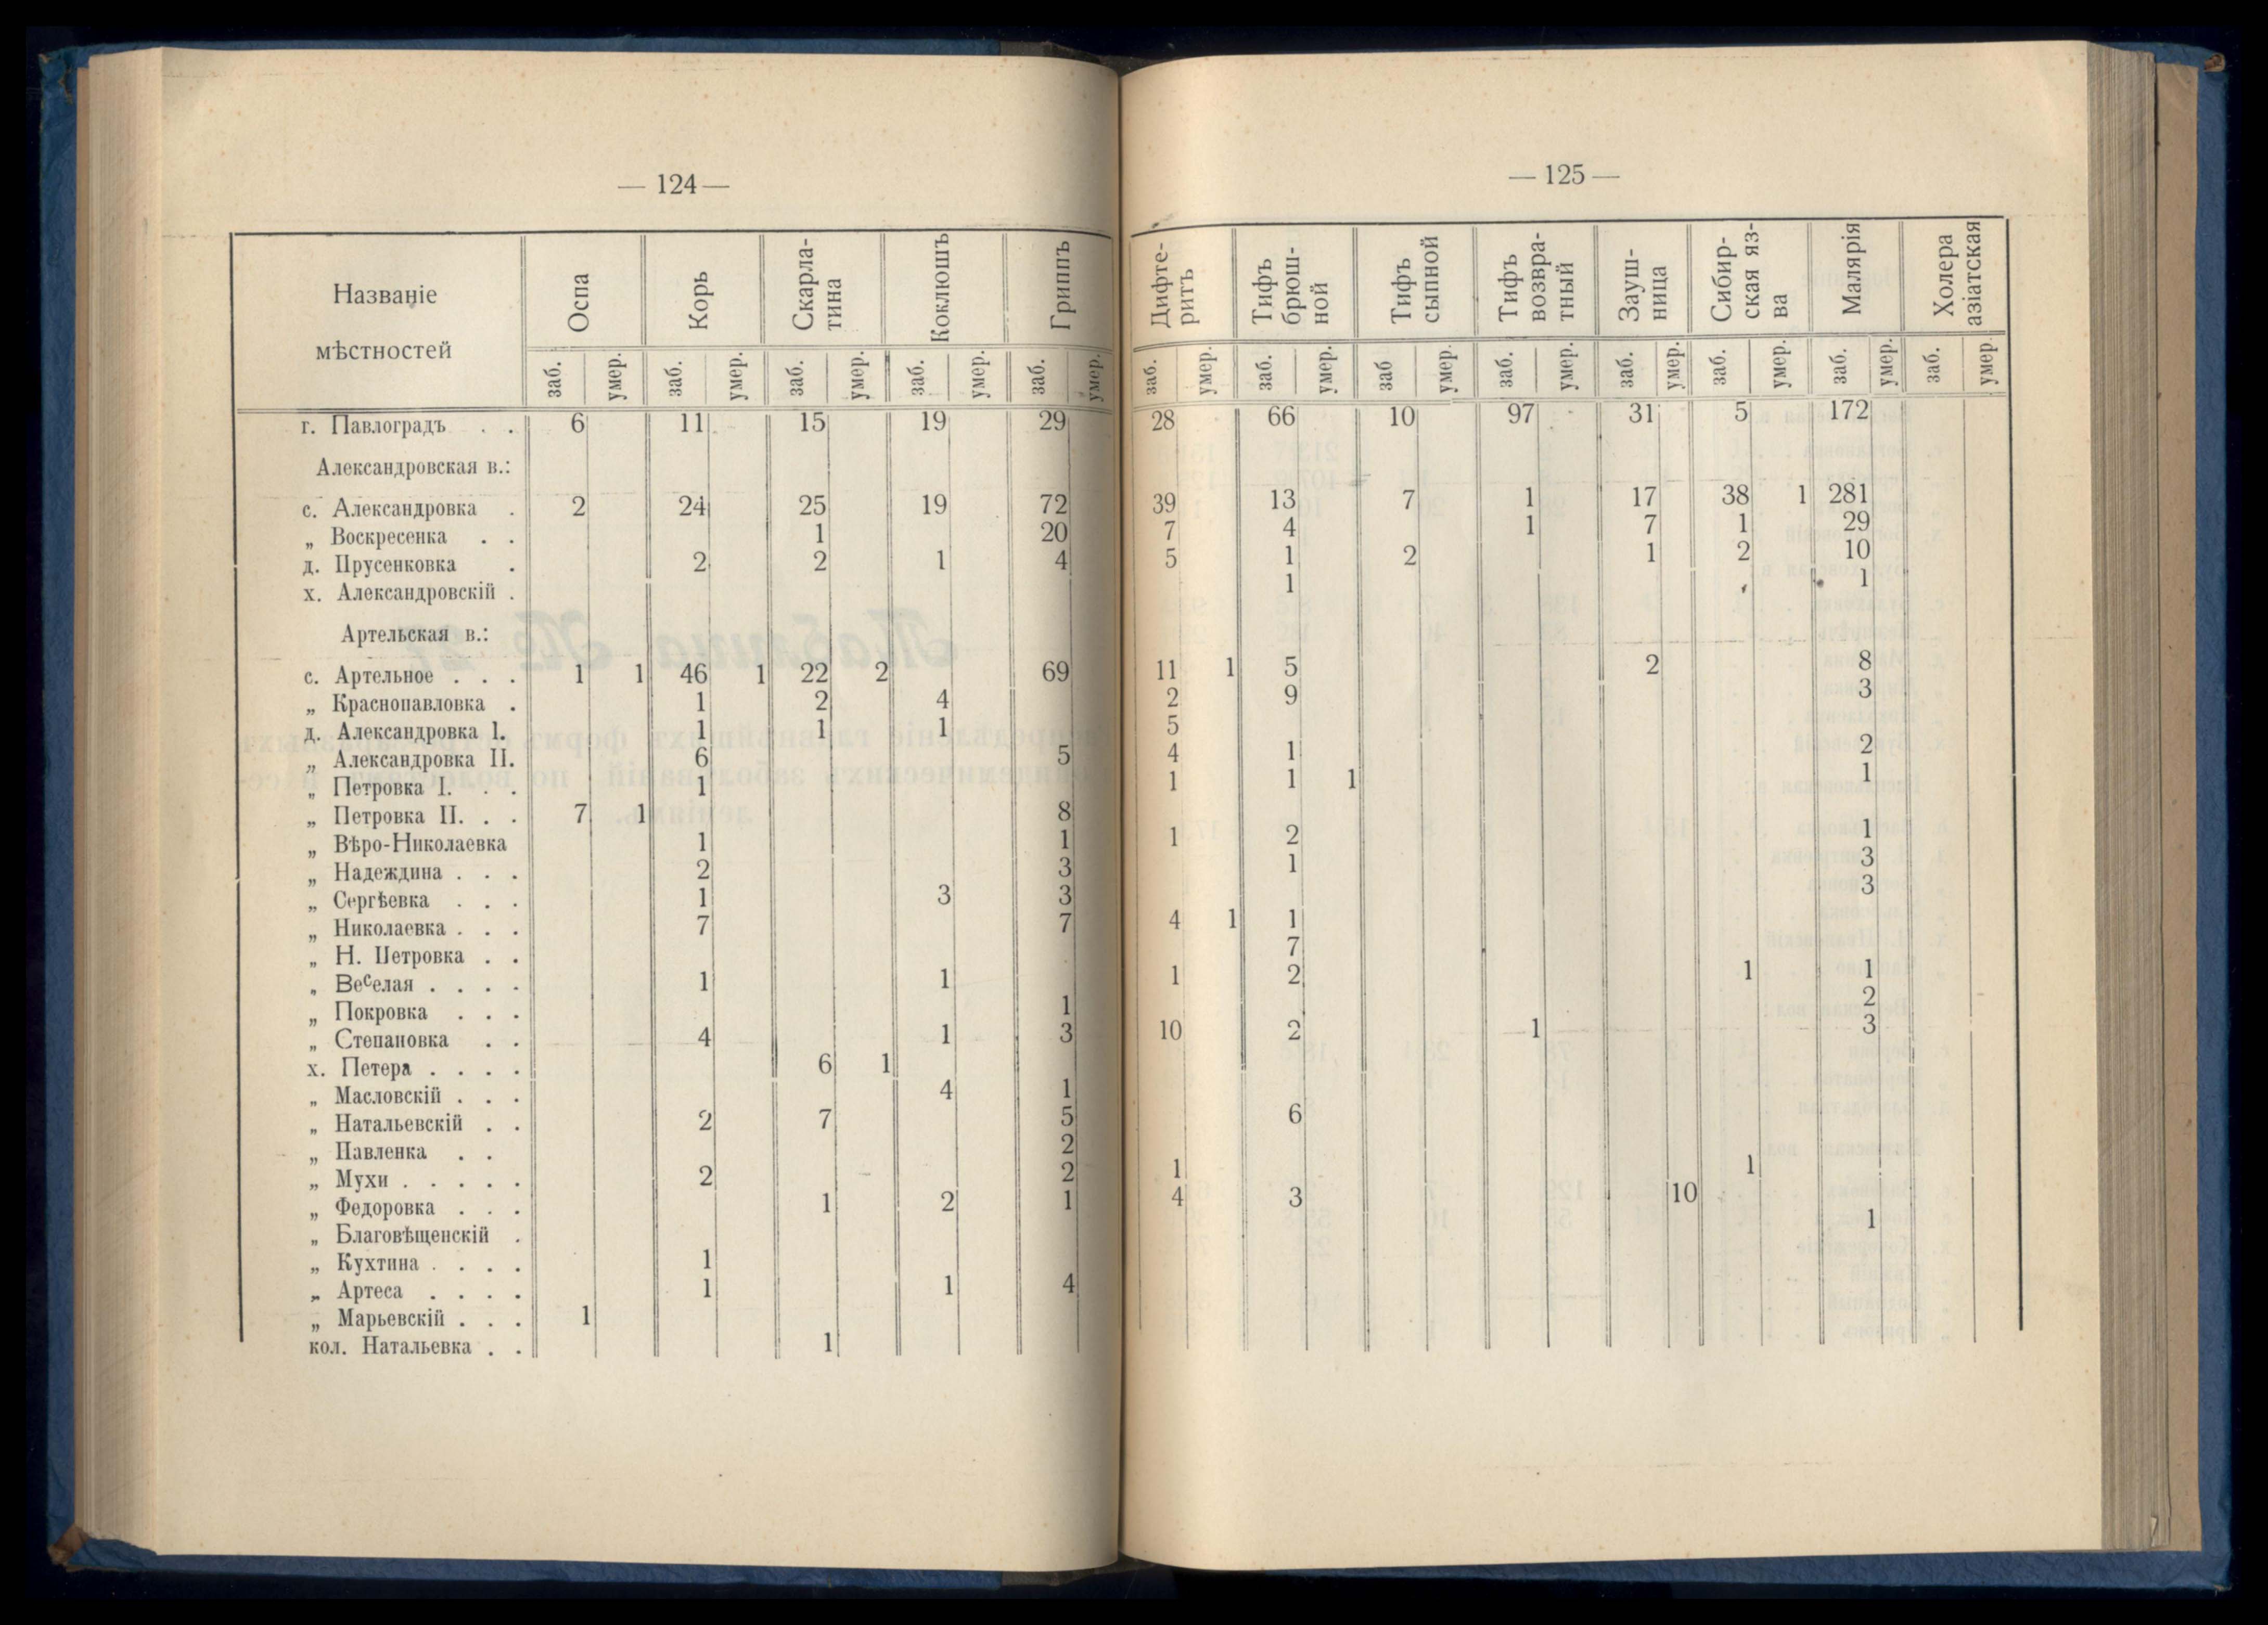 — 124 —
Названіе мѣстностей | Оспа | Корь | Скарла-тина | Коклюшъ | Гриппъ
заб. умер. заб. умер. заб. умер. заб. умер. заб. умер.
г. Павлоградъ . . 6 11 15 19 29
Александровская в.:
с. Александровка . 2 24 25 19 72
„ Воскресенка . . 1 20
д. Прусенковка . 2 2 1 4
х. Александровскій .
Артельская в.:
с. Артельное . . . 1 1 46 1 22 2 69
„ Краснопавловка . 1 2 4
д. Александровка I. 1 1 1
„ Александровка II. 6 5
„ Петровка I. . . 1
„ Петровка II. . . 7 1 8
„ Вѣро-Николаевка 1 1
„ Надеждина . . . 2 3
„ Сергѣевка . . . 1 3 3
„ Николаевка . . . 7 7
„ Н. Петровка . .
„ Веселая . . . . 1 1
„ Покровка . . . 1
„ Степановка . . 4 1 3
х. Петера . . . . 6 1
„ Масловскій . . . 4 1
„ Натальевскій . . 2 7 5
„ Павленка . . 2
„ Мухи . . . . . 2 2
„ Федоровка . . . 1 2 1
„ Благовѣщенскій .
„ Кухтина . . . . 1
„ Артеса . . . . 1 1 4
„ Марьевскій . . . 1
кол. Натальевка . . 1
— 125 —
Дифте-ритъ | Тифъ брюш-ной | Тифъ сыпной | Тифъ возвра-тный | Зауш-ница | Сибир-ская яз-ва | Малярія | Холера азіатская
заб. умер. заб. умер. заб умер. заб. умер. заб. умер. заб. умер. заб. умер. заб. умер.
28 66 10 97 31 5 172
39 13 7 1 17 38 1 281
7 4 1 7 1 29
5 1 2 1 2 10
1 1
11 1 5 2 8
2 9 3
5
4 1 2
1 1 1 1
1 2 1
1 3
3
4 1 1
7
1 2 1 1
2
10 2 1 3
6
1 1
4 3 10
1